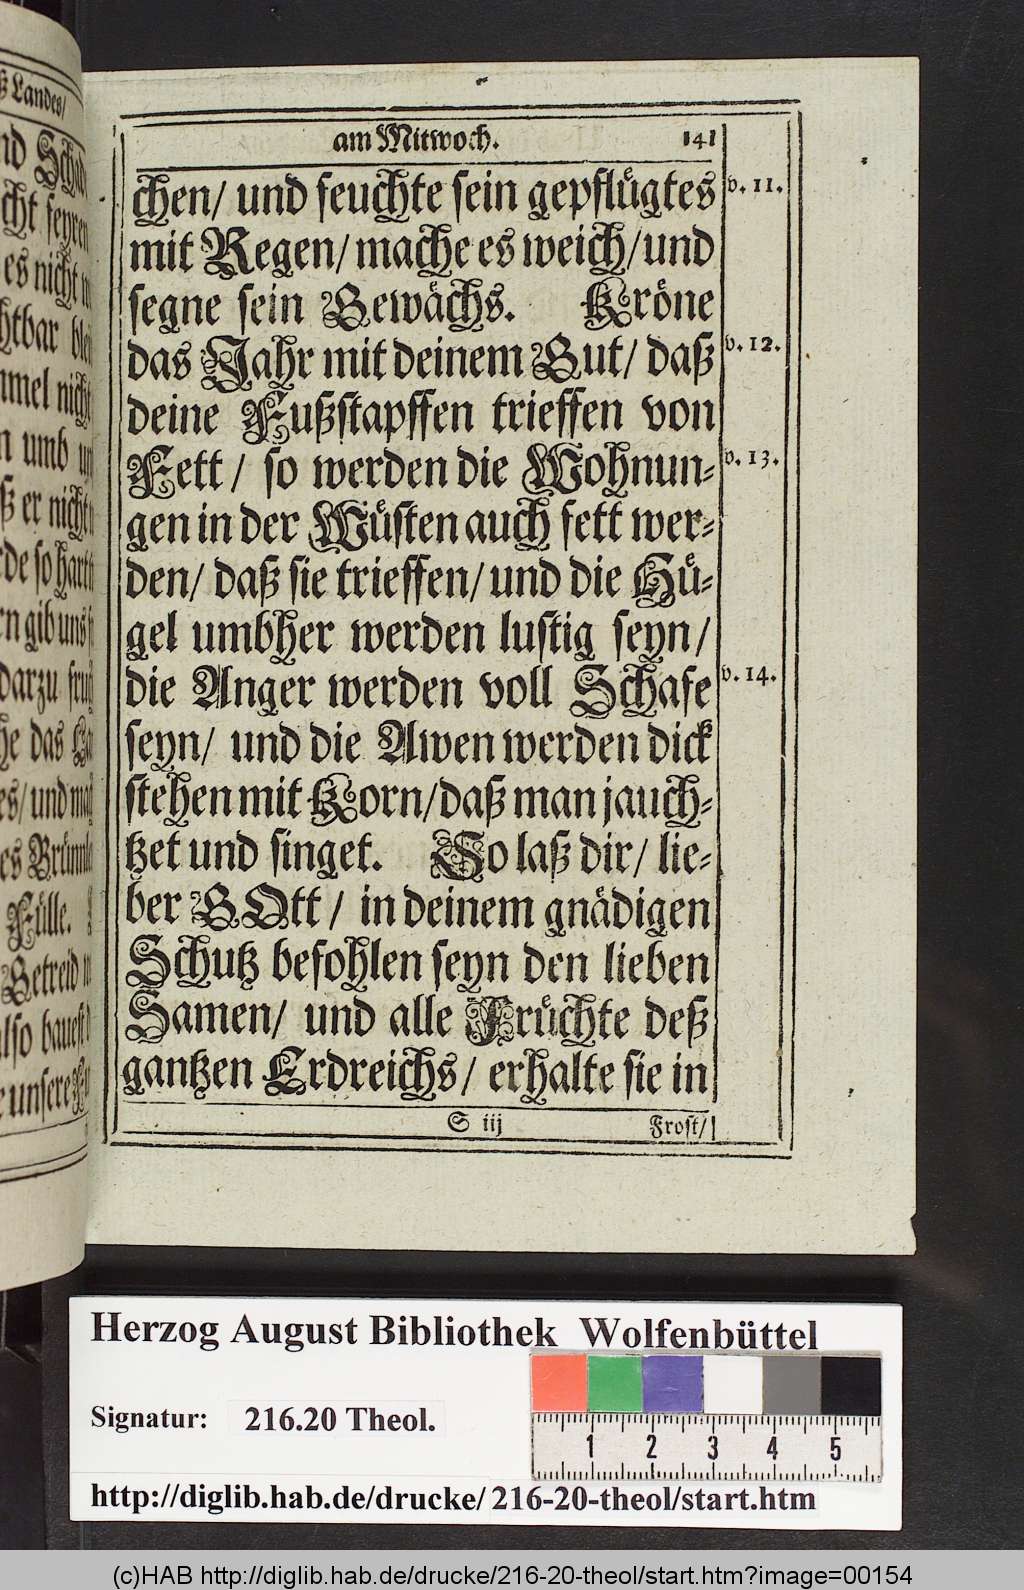 ß Landes/
am Mitwoch. 141
chen/ und feuchte sein gepflügtes v. 11.
mit Regen/ mache es weich/ und
segne sein Gewächs. Kröne
das Jahr mit deinem Gut/ daß v. 12.
deine Fußstapffen trieffen von
Fett/ so werden die Wohnun= v. 13.
gen in der Wüsten auch fett wer=
den/ daß sie trieffen/ und die Hü=
gel umbher werden lustig seyn/
die Anger werden voll Schafe v. 14.
seyn/ und die Awen werden dick
stehen mit Korn/ daß man jauch=
tzet und singet. So laß dir/ lie=
ber GOtt/ in deinem gnädigen
Schutz befohlen seyn den lieben
Samen/ und alle Früchte deß
gantzen Erdreichs/ erhalte sie in
S iij Frost/
Herzog August Bibliothek Wolfenbüttel
Signatur: 216.20 Theol.
1 2 3 4 5
http://diglib.hab.de/drucke/216-20-theol/start.htm
(c)HAB http://diglib.hab.de/drucke/216-20-theol/start.htm?image=00154